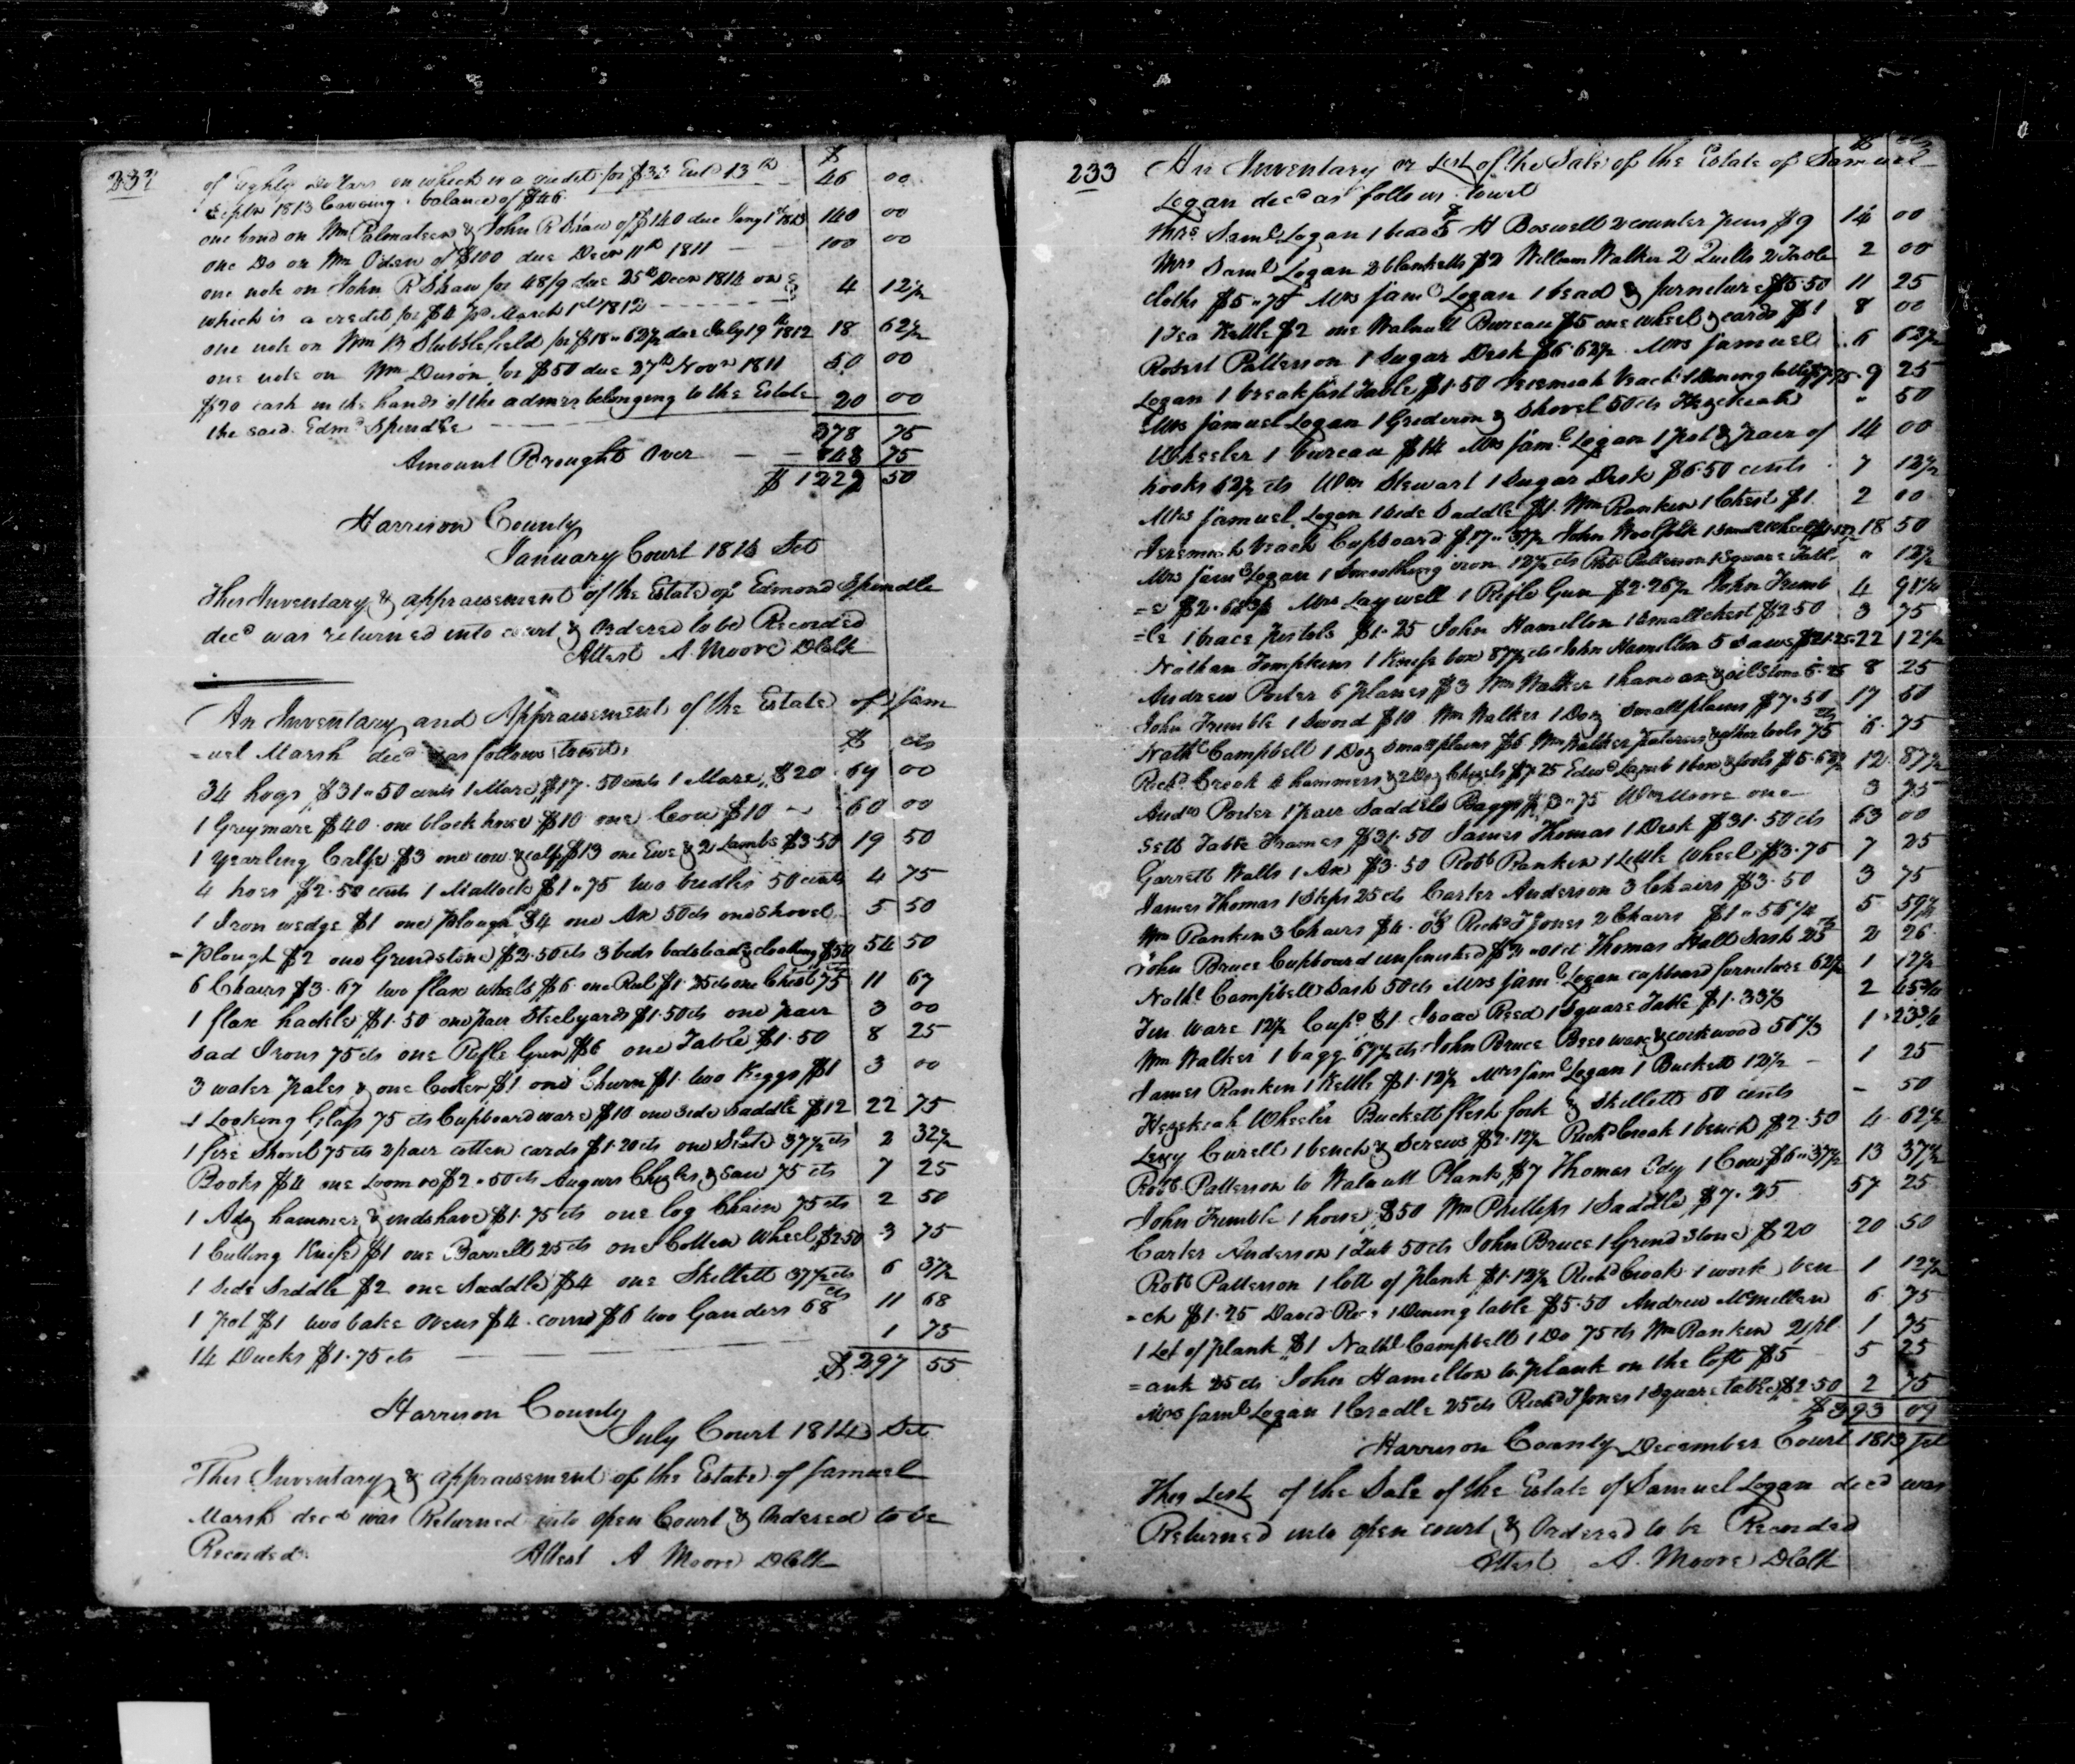 232
$
of Eighty Dollars on which is a credit for $33 Entd 13th 46 00
Septr 1813 leaving a balance of $46
one bond on Wm Palmateer & John R Shaw of $140 due Jany 1st 1813 140 00
one Do on Wm Oden of $100 due Decr 11th 1811 100 00
one note on John R Shaw for 48/9 due 25th Decr 1814 on 4 12½
which is a credit for $4 pd March 1st 1812
one note on Wm B Stubblefield for $18 " 62½ due July 19th 1812 18 62½
one note on Wm Duson for $50 due 27th Novr 1811 50 00
$20 cash in the hands of the admrs belonging to the Estate 20 00
the said Edmd Spindle
378 75
Amount Brought Over 848 75
$ 1227 50
Harrison County
January Court 1814 Sct
This Inventory & appraisement of the Estate of Edmond Spindle
decd was returned into court & Ordered to be Recorded
Attest A. Moore DClk
An Inventory and Appraisement of the Estate of Sam
=uel Marsh decd as follows towit, $ cts
34 hogs $31 " 50 cents 1 Mare $17. 50 cents 1 Mare $20 69 00
1 Grey mare $40. one black horse $10 one Cow $10 60 00
1 Yearling Calf $3 one cow & calf $13 one Ewe & 2 Lambs $3.50 19 50
4 hoes $2.50 cents 1 Mattock $1 " 75 two bridles 50 cents 4 75
1 Iron wedge $1 one plough $4 one Ax 50 cts one Shovel 5 50
=plough $2 one Grindstone $2.50 cts 3 beds bedsteads & clothing $50 54 50
6 Chairs $3.67 two flax wheels $6 one Reel $1.25 cts one Chest 75 cts 11 67
1 flax hackle $1.50 one pair Steelyards $1.50 cts one pair 3 00
Sad Irons 75 cts one Rifle Gun $6 one Table $1.50 8 25
3 water pales & one Cooler $1 one Churn $1. two Keggs $1 3 00
1 Looking Glass 75 cts Cupboard ware $10 one side saddle $12 22 75
1 fire Shovel 75 cts 2 pair cotten cards $1.20 cts one Slate 37½ cts 2 32½
Books $4 one Loom $2 " 50 cts Augurs Chizles & Saw 75 cts 7 25
1 Adz hammer & index have $1.75 cts one log Chain 75 cts 2 50
1 Cutting Knife $1 one Barrell 25 cts one Cotten Wheel $2.50 3 75
1 Side Saddle $2 one Saddle $4 one Skillett 37½ cts 6 37½
1 pot $1 two bake Ovens $4. corn $6 two Ganders 68 cts 11 68
14 Ducks $1.75 cts 1 75
$ 297 55
Harrison County
July Court 1814 Sct
This Inventory & appraisement of the Estate of Samuel
Marsh decd was Returned into open Court & Ordered to be
Recorded Attest A Moore DClk
233
$ cts
An Inventory or List of the Sale of the Estate of Samuel
Logan decd as follows towit
Mrs Saml Logan 1 bead $5 H Boswell 2 counter pens $9 14 00
Mrs Saml Logan 2 blanketts $2 William Walker 2 Quilts 2 Table 2 00
cloths $5 " 75 Mrs Saml Logan 1 bead & furneture $5.50 11 25
1 Tea Kettle $2 one Walnutt Bureau $5 one wheel & cards $1 8 00
Robert Patterson 1 Sugar Desk $6.62½ Mrs Samuel 6 62½
Logan 1 breakfast Table $1.50 Jeremiah Veach 1 Dining table $7.75 9 25
Mrs Samuel Logan 1 Grediron & Shovel 50 cts Hezekiah " 50
Wheeler 1 bureau $14 Mrs Saml Logan 1 pot & pair of 14 00
hooks 62½ cts Wm Stewart 1 Sugar Desk $6.50 cents 7 12½
Mrs Samuel Logan 1 side saddle $1. Wm Ranken 1 Chest $1 2 00
Jeremiah Veach Cupboard $17 " 37½ John Woolfolk 1 Small Wheel $1.12½ 18 50
Mrs Saml Logan 1 Smoothing iron 12½ cts Robt Patterson 1 Square Tabl " 12½
=e $2.68¾ Mrs Laywell 1 Rifle Gun $2.26½ John Trumb 4 91¼
=le 1 brace pistols $1.25 John Hamilton 1 small chest $2.50 3 75
Nathan Tompkins 1 Knife box 87½ cts John Hamilton 5 Saws $21.25 22 12½
Andrew Porter 6 planes $3 Wm Walker 1 hand ax & oil stone 5.25 8 25
John Trumble 1 Sword $10 Wm Walker 1 Doz small plains $7.50 17 50
Nathl Campbell 1 Doz small plains $6 Wm Walker & other tools 75 cts 6 75
Richd Creak 4 hammers & 2 Doz Chizels $7.25 Edwd Lamb 1 box & tools $5.62½ 12 87½
Andw Porter 1 pair Saddle Baggs $3 " 75 Wm Moore one 3 75
Sett Table Frames $31.50 James Thomas 1 Desk $31.50 cts 63 00
Garrett Walls 1 Ax $3.50 Robt Ranken 1 Little Wheel $3.75 7 25
James Thomas 1 Steps 25 cts Carter Anderson 3 Chairs $3.50 3 75
Wm Ranken 3 Chairs $4.03 Richd T Jones 2 Chairs $1 " 56¼ 5 59¼
John Bruce Cupboard unfinished $2 " 01 ct Thomas Hall Sash 25 cts 2 26
Nathl Campbell Sash 50 cts Mrs Saml Logan cupboard furneture 62½ 1 12½
Tin ware 12½ Cups $1 Isaac Reed 1 Square Table $1.33⅓ 2 45¾
Wm Walker 1 bagg 67½ cts John Bruce Bees wax & cork wood 56⅓ 1 23¾
James Ranken 1 Kettle $1.12½ Mrs Saml Logan 1 Buckett 12½ 1 25
Hezekiah Wheeler Buckett flesh fork & Skillett 50 cents 50
Levy Curell 1 bench & screws $2.12½ Richd Creak 1 bench $2.50 4 62½
Robt Patterson to Walnutt Plank $7 Thomas Edy 1 Cow $6 " 37½ 13 37½
John Trumble 1 horse $50 Wm Phillips 1 Saddle $7.25 57 25
Carter Anderson 1 Tub 50 cts John Bruce 1 Grind Stone $20 20 50
Robt Patterson 1 lott of plank $1.12½ Richd Creak 1 work ben 1 12½
=ch $1.25 David Rees 1 Dining table $5.50 Andrew McMillen 6 75
1 Lot of plank $1 Nathl Campbell 1 Do 75 cts Wm Ranken 2 pl 1 75
=ank 25 cts John Hamilton to plank on the loft $5 5 25
Mrs Saml Logan 1 Cradle 25 cts Richd T Jones 1 Square table $2.50 2 75
$393 09
Harrison County December Court 1813 Sct
This List of the Sale of the Estate of Samuel Logan decd was
Returned into open court & Ordered to be Recorded
Attest A. Moore DClk